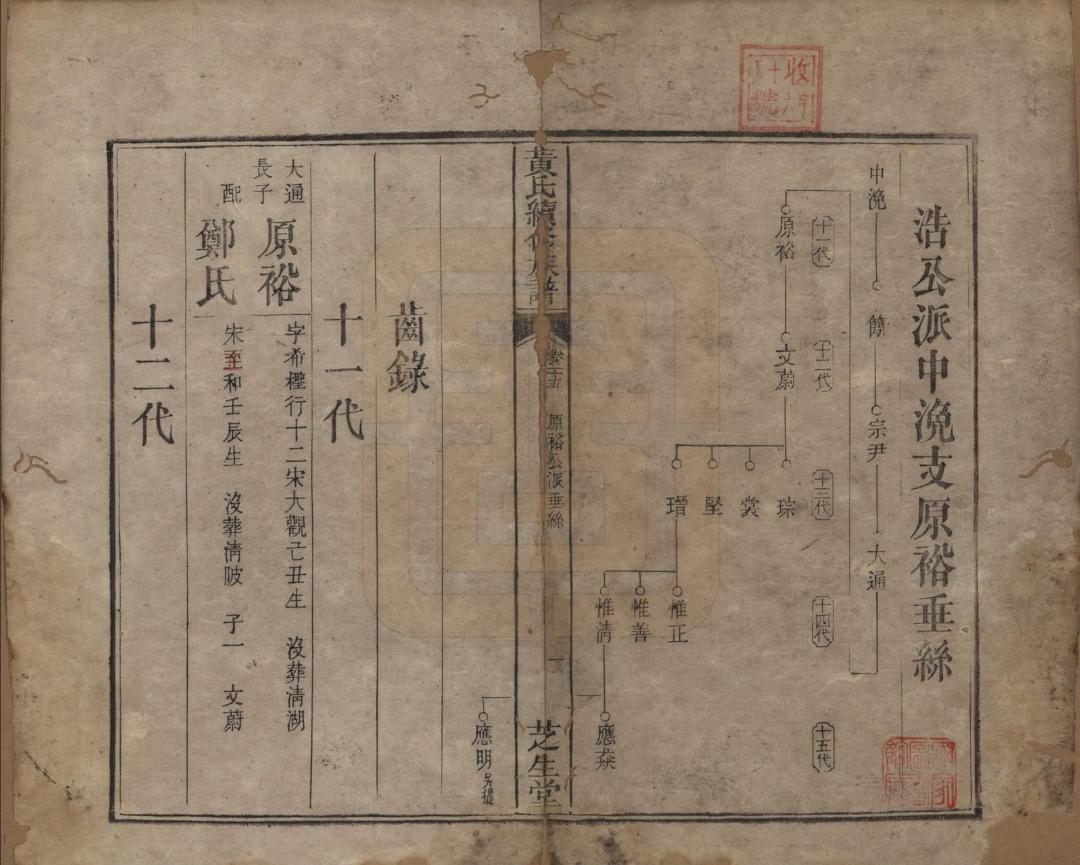 浩公派中浼支原裕垂絲
中浼
簡
宗尹
大通
十一代
十二代
十三代
十四代
十五代
原裕
文蔚
琮
裳
堅
瑨
惟正
惟善
惟清
應焱
應明另提
黃氏續修族譜
原裕公派垂絲
一
芝生堂
齒錄
十一代
大通長子
原裕
字希檉行十二宋大觀己丑生 沒葬清湖
配
鄭氏
宋至和壬辰生 沒葬清陂 子一 文蔚
十二代